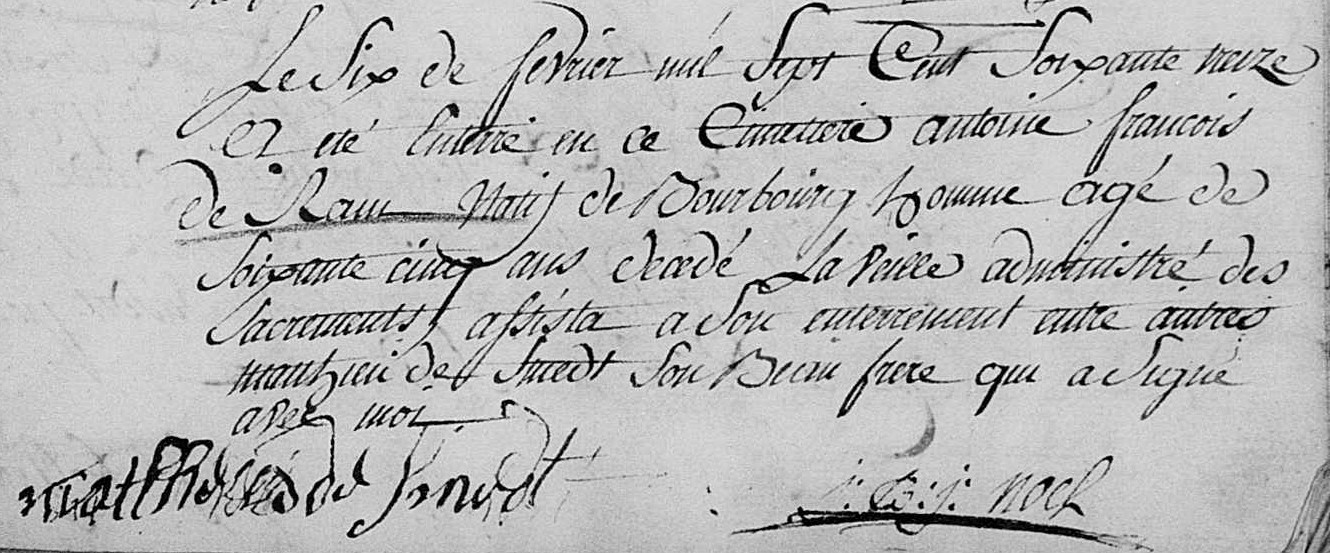 Le Six de fevrier mil Sept Cent Soixante treize
a eté Enterré en ce Cimetiere antoine francois
de Ram Natif de Bourbourg homme agé de
Soixante cinq ans decedé La veille administré des
Sacrements, assista a Son enterrement entre autres
mathieu de Smedt Son Beau frere qui a Signé
avec moi
matthieus de Smedt
j: B: j: Noel